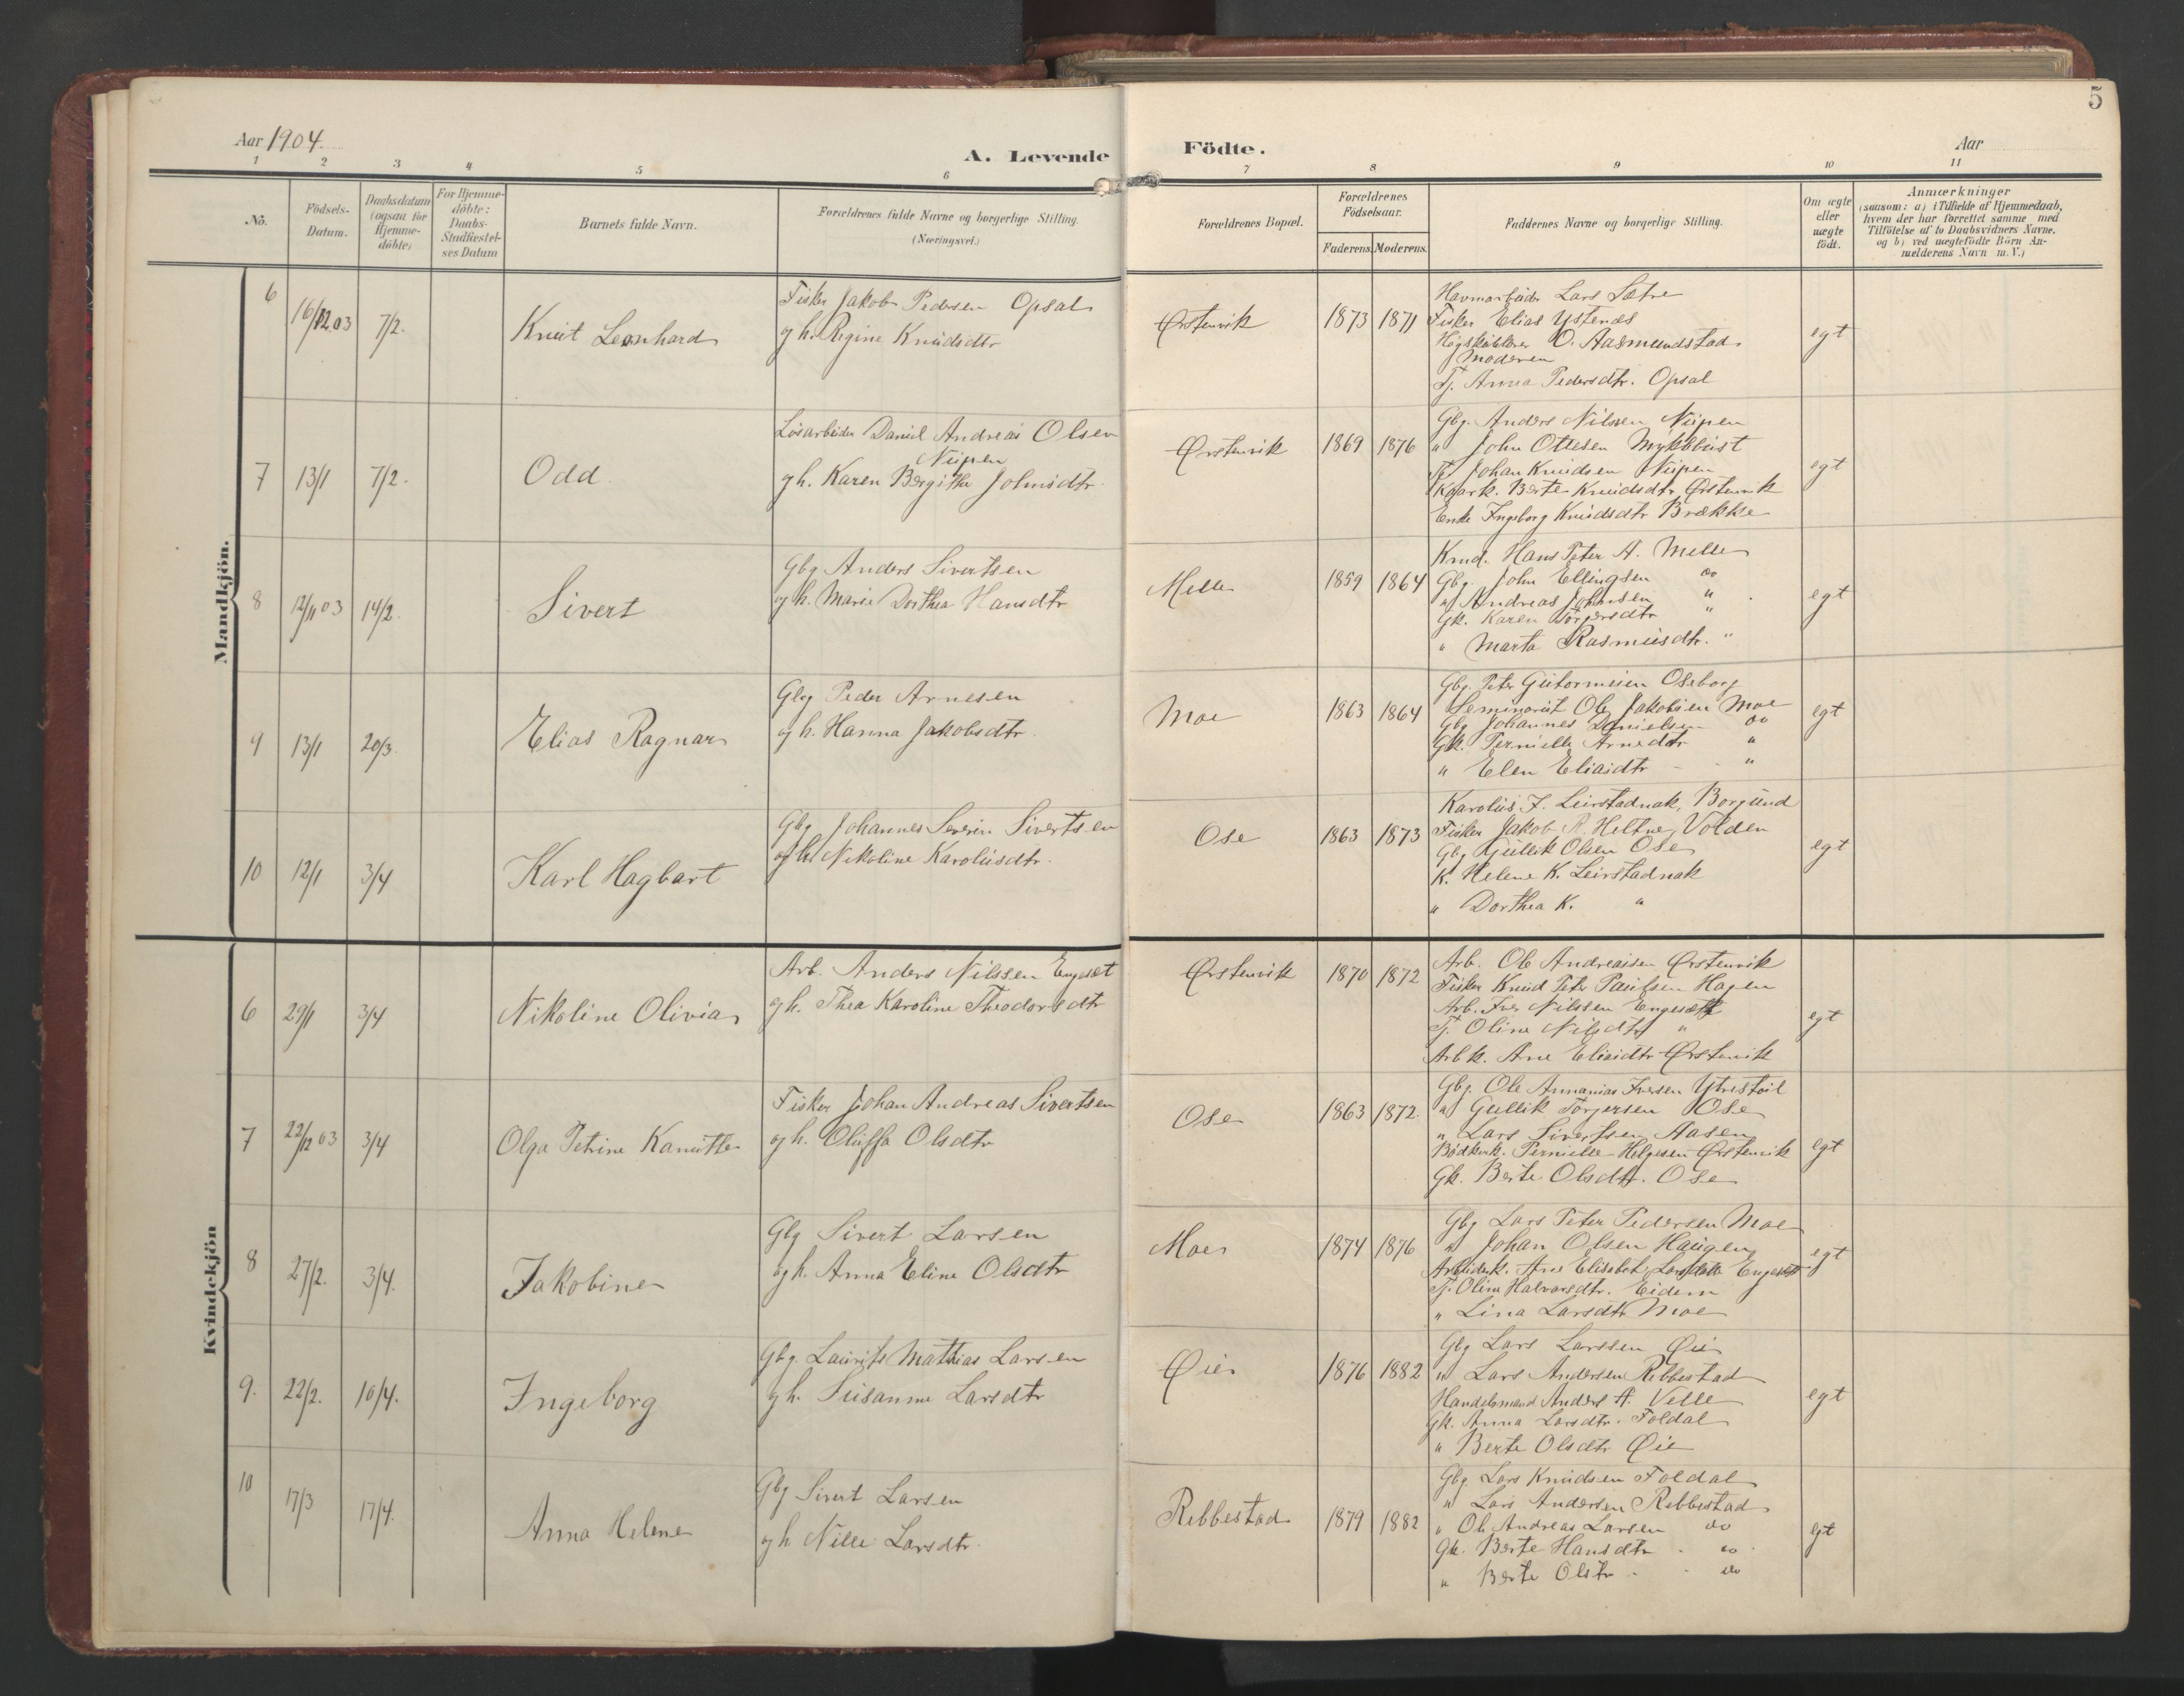 5
Aar 1904.
A. Levende Födte.
Aar
1 2 3 4 5 6 7 8 9 10 11
No.
Födsels-Datum.
Daabsdatum (ogsaa for Hjemmedöbte)
For Hjemmedöbte: Daabs-Stadfæstelses Datum
Barnets fulde Navn.
Forældrenes fulde Navne og borgerlige Stilling. (Næringsvei.)
Forældrenes Bopæl.
Forældrenes Födselsaar.
Faderens. Moderens.
Faddernes Navne og borgerlige Stilling.
Om ægte eller uægte födt.
Anmærkninger
(saasom: a) i Tilfælde af Hjemmedaab,
hvem der har forrettet samme med
Tilföielse af to Daabsvidners Navne.
og b) ved uægtefödte Börn Anmelderens Navn m.V.)
Mandkjön.
6 16/12 03 7/2. Knut Leonhard
Fisker Jakob Pedersen Opsal
og h. Regine Knudsdtr
Ørstenvik 1873 1871
Havnarbeider Lars Sætre
Fisker Elias Ystenes
O. Aasmundstad
Moderen
Tj. Anna Pedersdtr. Opsal
egt
7 13/1 7/2. Odd
Løsarbeider Daniel Andreas Olsen
Nupen
og h. Karen Bergitha Johnsdtr.
Ørstenvik 1869 1876
Gbg. Anders Nilssen Nupen
" John Ottesen Myklebust
Johan Knudsen Nupen
Kaark. Berte Knudsdtr Ørstenvik
Enke Ingeborg Knudsdtr Brække
egt
8 12/11 03 14/2. Sivert
Gbg Anders Sivertsen
og h. Marie Dorthea Hansdtr
Melle 1859 1864
Knud. Hans Peter A. Melle
Gbg. John Ellingsen do
" Andreas Johnsen "
Gk. Karen Torgersdtr "
" Marta Rasmusdtr. "
egt
9 13/1 20/3. Elias Ragnar
Gbg Peder Arnesen
og h. Hanna Jakobsdtr.
Moe 1863 1864
Gbg. Peter Guttormsen Oseborg
Seminarist Ole Jakobsen Moe
Gbg Johannes Danielsen do
Gk. Pernille Arnedtr "
" Elen Eliasdtr "
egt
10 12/1 3/4 Karl Hagbart
Gbg Johannes Severin Sivertsen
og h. Nikoline Karolusdtr.
Ose 1863 1873
Karolus J. Leirstadnak, Borgund
Fisker Jakob R. Heltne, Volden
Gbg Gullik Olsen Ose
K. Helene K. Leirstadnak
" Dorthea K. "
egt
Kvindekjön
6 29/1 3/4 Nikoline Olivia
Arb. Anders Nilssen Engeset
og h. Thea Karoline Theodorsdtr
Ørstenvik 1870 1872
Arb. Ole Andreassen Ørstenvik
Fisker Knud Peter Paulsen Hagen
Arb. Iver Nilssen Engesæt
Tj. Oline Nilsdtr "
Arb k. Ane Eliasdtr Ørstenvik
egt
7 22/12 03 3/4 Olga Petrine Kanutte
Fisker Johan Andreas Sivertsen
og h. Oluffa Olsdtr
Ose 1863 1872.
Gbg. Ole Annanias Iversen Ytrestøil
" Gullik Torgersen Ose
" Lars Sivertsen Aasen
Bødkerk. Pernille Helgesen Ørstenvik
Gk. Berte Olsdtr. Ose
egt
8 27/2. 3/4. Jakobine
Gbg Sivert Larsen
og h. Anna Eline Olsdtr
Moe 1874 1876
Gbg Lars Peter Pedersen Moe
" Johan Olsen Haugen
Arbeiderk. Ane Elisabet Larsdatter Engeset
Tj. Oline Halvarsdtr. Eidem
" Lina Larsdtr Moe
egt
9. 22/2. 10/4. Ingeborg
Gbg. Laurits Mathias Larsen
og h. Susanne Larsdtr
Øie 1876 1882
Gbg Lars Larssen Øie
" Lars Andersen Ribbestad
Handelsmand Anders A. Velle
Gk. Anna Larsdtr. Foldal
" Berte Olsdtr Øie
egt
10 17/3 17/4. Anna Helene
Gbg Sivert Larsen
og h Nille Larsdtr.
Ribbestad 1879 1882
Gbg. Lars Knudsen Foldal
" Lars Andersen Ribbestad
" Ole Andreas Larsen do
Gk. Berte Hansdtr. do
" Berte Olsdtr. do
egt